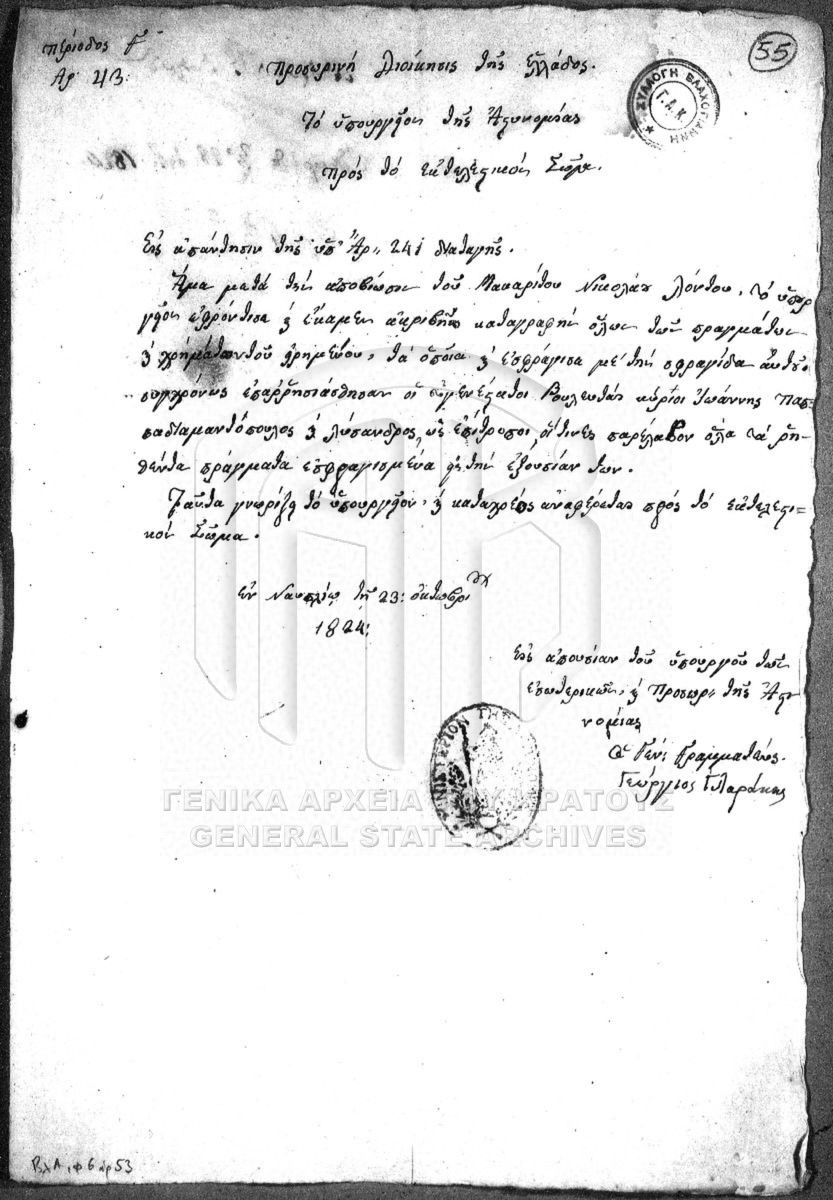 περίοδος Γ΄
Αρ 43:
55
Προσωρινή Διοίκησις της Ελλάδος.
ΣΥΛΛΟΓΗ ΒΛΑΧΟΓΙΑΝΝΗ
Γ.Α.Κ.
Τό ὑπουργεῖον τῆς Ἀστυνομίας
πρός τό ἐκτελεστικόν Σῶμα.
Εἰς ἀπάντησιν τῆς ὑπ' Ἀρ: 241 διαταγῆς.
Ἅμα μετά τήν ἀποβίωσιν τοῦ Μακαρίτου Νικολάου Λόντου, τό ὑπουρ
γεῖον ἐφρόντισε καί ἔκαμεν ἀκριβῆ καταγραφήν ὅλων τῶν πραγμάτων
καί χρημάτων τοῦ εἰρημένου, τά ὁποῖα καί ἐσφράγισε μέ τήν σφραγίδα
συγχρόνως ἐπαρρησιάσθησαν οἱ εὐγενέστατοι Βουλευταί κύριοι Ἰωάννης Παπ=
παδιαμαντόπουλος καί Λύσανδρος, ὡς ἐπίτροποι, οἵτινες παρέλαβον ὅλα τά ῥη-
θέντα πράγματα ἐσφραγισμένα εἰς τήν ἐξουσίαν των.
Ταῦτα γνωρίζει τό ὑπουργεῖον, καί καταχρέως ἀναφέρεται πρός τό ἐκτελεστι-
κόν Σῶμα.
Ἐν Ναυπλίῳ τῇ 23: ὀκτωβρίου
1824:
Εἰς ἀπουσίαν τοῦ ὑπουργοῦ τῶν
ἐσωτερικῶν, καί Προσωρ: τῆς Ἀστυ
νομίας
Ὁ Γεν: Γραμματεύς.
Γεώργιος Γλαράκης
ΜΙΝΙΣΤΕΡΙΟΝ ΤΗΣ
ΓΕΝΙΚΑ ΑΡΧΕΙΑ ΤΟΥ ΚΡΑΤΟΥΣ
GENERAL STATE ARCHIVES
Βλ Α, φ 6 αρ 53